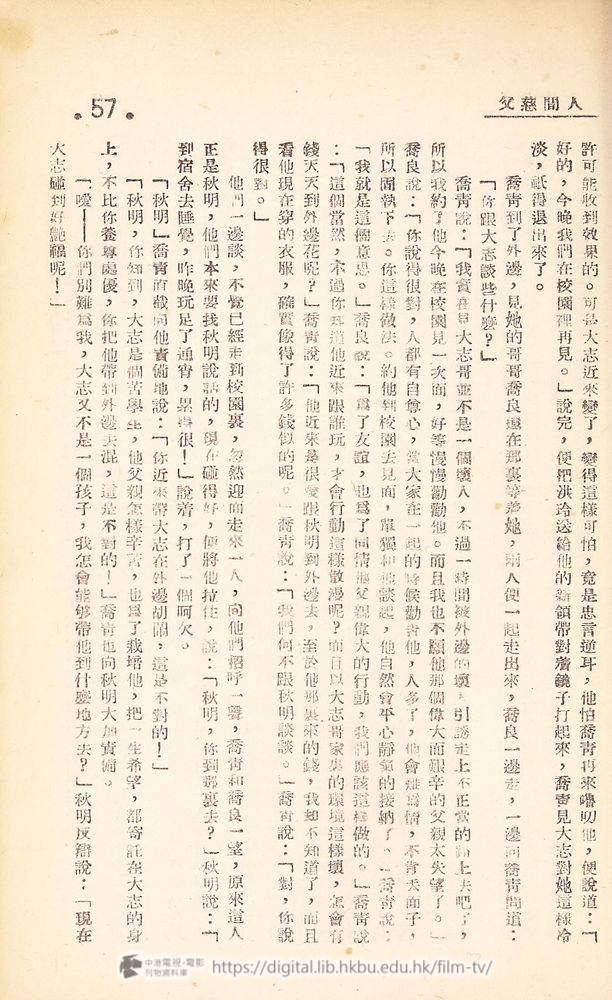 人間慈父
.57.
許可能收到效果的。可是大志近來變了，變得這樣可怕，竟是忠言逆耳，他怕喬青再來嚕囌他，便說道：「
好的，今晚我們在校園裡再見。」說完，便把洪玲送給他的新領帶對着鏡子打起來，喬青見大志對她這樣冷
淡，祇得退出來了。
喬青到了外邊，見她的哥哥喬良還在那裏等着她，兩人便一起走出來，喬良一邊走，一邊向喬青問道：
「你跟大志談些什麼？」
喬青說：「我實在 大志哥並不是一個壞人，不過一時間被外邊的壞 引誘走上不正當的路上去吧了，
所以我約了他今晚在校園見一次面，好等慢慢勸勸他。而且我也不願他那個偉大而艱辛的父親太失望了。」
喬良說：「你說得很對，人都有自尊心，當大家在一起的時候勸告他，人多了，他會難爲情，不肯丢面子，
所以固執下去。你這樣做法。約他到校園去見面，單獨和他談起，他自然會平心靜氣的接納了。」喬青說：
「我就是這個意思。」喬良說：「爲了友誼，也爲了同情他父親偉大的行動，我們應該這樣做的。」喬青說
：「這個當然，不過你知道他近來跟誰玩，才會行動這樣散漫呢？而且以大志哥家裏的環境這樣壞，怎會有
錢天天到外邊花呢？」喬青說：「他近來是很愛跟秋明到外邊去，至於他那裏來的錢，我却不知道了，而且
看他現在穿的衣服，確實像得了許多錢似的呢。」喬青說：「我們何不跟秋明談談。」喬青說：「對，你說
得很對。」
他們一邊談，不覺已經走到校園裏，忽然迎面走來一人，向他們招呼一聲，喬青和喬良一望，原來這人
正是秋明，他們本來要找秋明說話的，現在碰得好，便將他拉住，說：「秋明，你到那裏去？」秋明說：「
到宿舍去睡覺，昨晚玩足了通宵，累得很！」說着，打了一個呵欠。
「秋明」喬青面截向他責備地說：「你近來帶大志在外邊胡鬧，這是不對的！」
「秋明，你知到，大志是個苦學生，他父親怎樣辛苦，也爲了栽培他，把一生希望，都寄託在大志的身
上，不比你養尊處優，你把他帶到外邊去混，這是不對的！」喬青也向秋明大加責備。
「噯——你們別難爲我，大志又不是一個孩子，我怎會能够帶他到什麼地方去？」秋明反辯說：「現在
大志碰到好艷福呢！」
中港電視・電影
刊物資料庫
https://digital.lib.hkbu.edu.hk/film-tv/